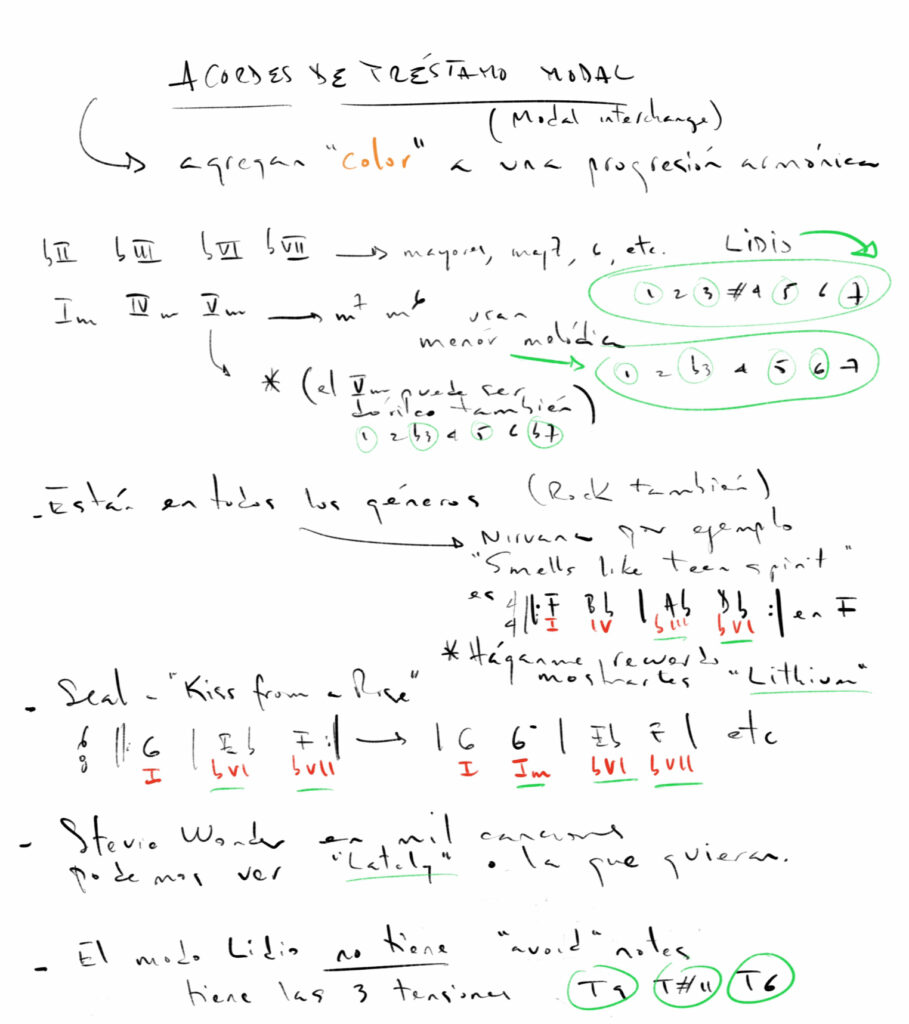 ACORDES DE PRÉSTAMO MODAL
(Modal interchange)
agregan "color" a una progresión armónica
bII bIII bVI bVII → mayores, maj7, 6, etc. LIDIO
1 2 3 #4 5 6 7
Im IVm Vm → m7 m6 usan
menor melódica
1 2 b3 4 5 6 7
* (el Vm puede ser
dórico también)
1 2 b3 4 5 6 b7
- Están en todos los géneros (Rock también)
Nirvana por ejemplo
"Smells like teen spirit"
es 4/4 ||: F Bb | Ab Db :|| en F
I IV bIII bVI
* Háganme recuerdo
mostrarles "Lithium"
- Seal - "Kiss from a Rose"
6/8 ||: G | Eb F :|| → | G G- | Eb F | etc
I bVI bVII I Im bVI bVII
- Stevie Wonder en mil canciones
podemos ver "Lately" o la que quieran.
- El modo Lidio no tiene "avoid" notes
tiene las 3 tensiones T9 T#11 T6